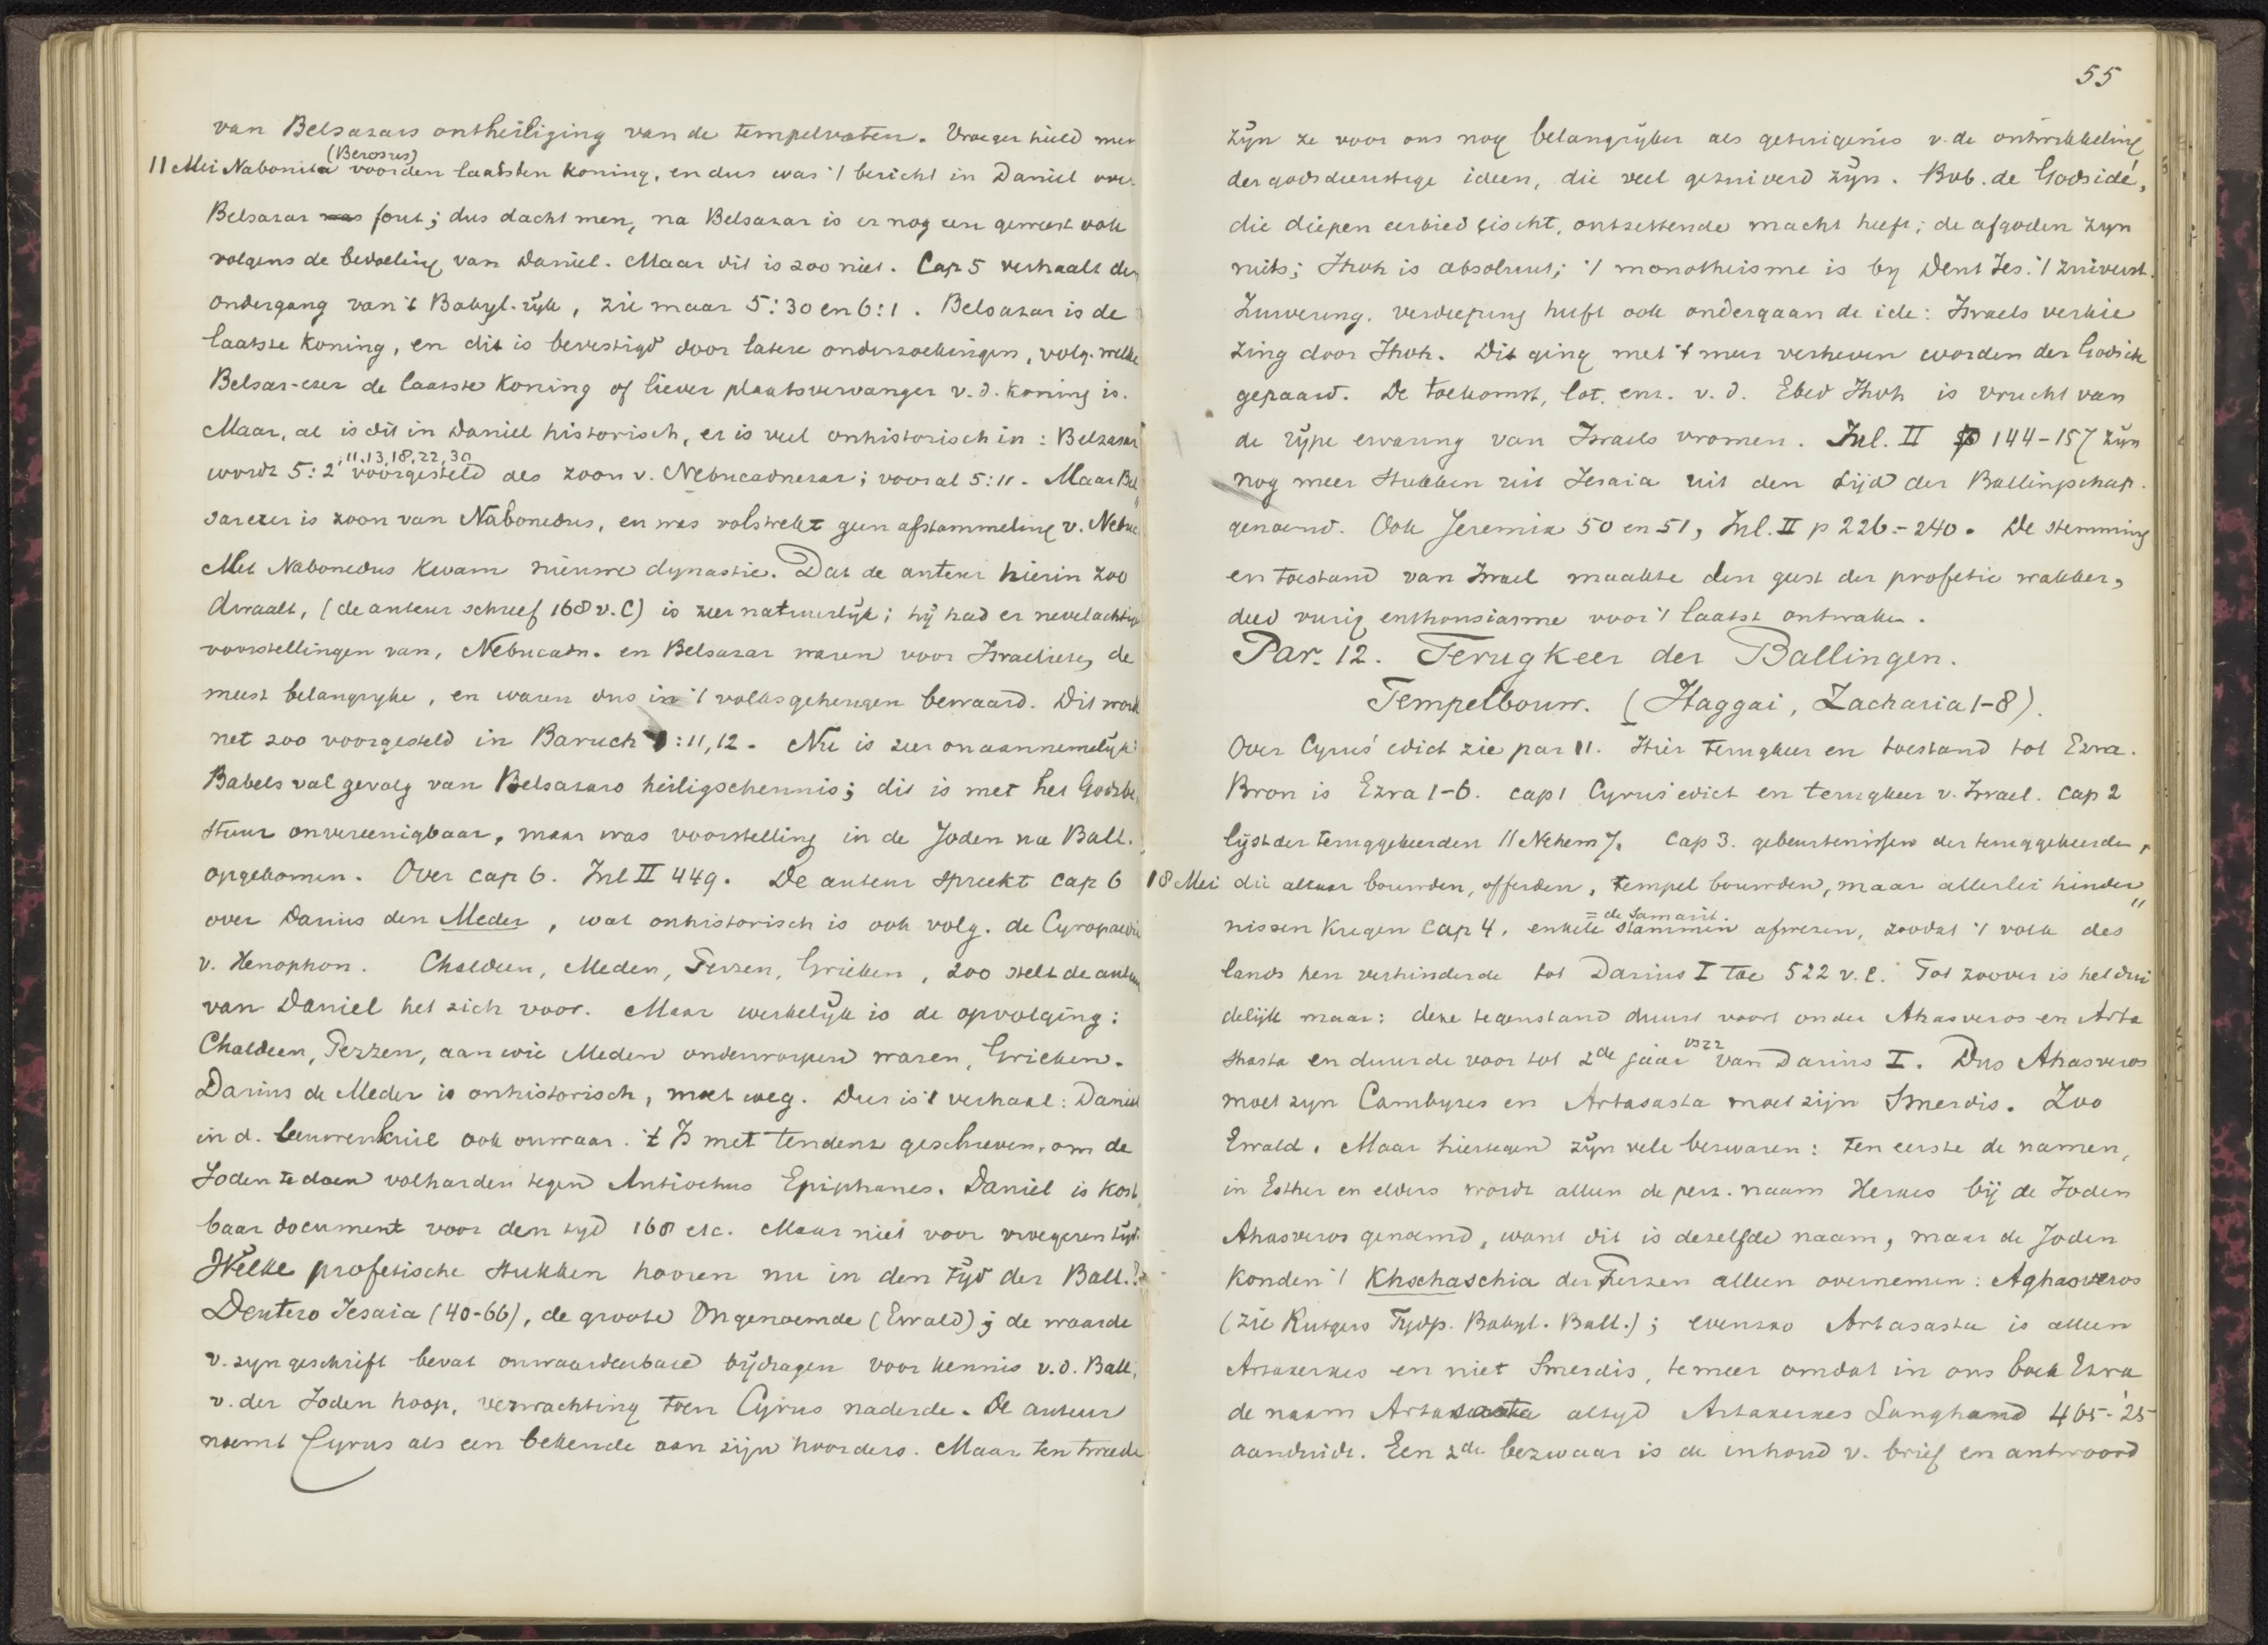 van Belsazars ontheiliging van de tempelvaten. Vroeger hield men
(Berosus)
11 Mei Nabonita voor den laatsten koning, en dus was 't bericht in Daniel over
Belsazar was fout; dus dacht men, na Belsazar is er nog een geweest ook
volgens de bedoeling van Daniel. Maar dit is zoo niet. Cap 5 verhaalt den
ondergang van 't Babyl. rijk, zie maar 5:30 en 6:1. Belsazar is de
laatste koning, en dit is bevestigd door latere onderzoekingen, volg. welke
Belsar-ezer de laatste koning of liever plaatsvervanger v. d. koning is.
Maar, al is dit in Daniel historisch, er is veel onhistorisch in: Belsazar
, 11, 13, 18, 22, 30
wordt 5:2 voorgesteld als zoon v. Nebucadnezar; vooral 5:11. Maar Bel
sarezer is zoon van Nabonedus, en was volstrekt geen afstammeling v. Nebuc.
Met Nabonedus kwam nieuwe dynastie. Dat de auteur hierin zoo
dwaalt, (de auteur schreef 168 v. C) is zeer natuurlijk; hij had er nevelachtige
voorstellingen van, Nebucadn. en Belsazar waren voor Israelieten de
meest belangrijke, en waren dus in 't volksgeheugen bewaard. Dit wordt
net zoo voorgesteld in Baruch 1:11,12. Nu is zeer onaannemelijk:
Babels val gevolg van Belsazars heiligschennis; dit is met het Godsbe,
stuur onvereenigbaar, maar was voorstelling in de Joden na Ball.
opgekomen. Over cap 6. Inl II 449. De auteur spreekt cap 6
over Darius den Meder, wat onhistorisch is ook volg. de Cyropaedie
v. Xenophon. Chaldeen, Meden, Perzen, Grieken, zoo stelt de auteur
van Daniel het zich voor. Maar werkelijk is de opvolging:
Chaldeen, Perzen, aan wie Meden onderworpen waren, Grieken.
Darius de Meder is onhistorisch, moet weg. Dus is 't verhaal: Daniel
in d. leeuwenkuil ook onwaar. 't Is met tendenz geschreven, om de
Joden te doen volharden tegen Antiochus Epiphanes. Daniel is kost,
baar document voor den tyd 168 etc. Maar niet voor vroegeren tijd.
Welke profetische stukken hooren nu in den tyd der Ball.?
Deutero Jesaia (40-66), de groote Ongenoemde (Ewald); de waarde
v. zyn geschrift bevat onwaardeerbare bijdragen voor kennis v. d. Ball,
v. der Joden hoop, verwachting toen Cyrus naderde. De auteur
noemt Cyrus als een bekende aan zijn hoorders. Maar ten tweede
55
zijn ze voor ons nog belangrijker als getuigenis v. de ontwikkeling
der godsdienstige ideen, die veel gezuiverd zijn. Bvb. de Godsidé,
die diepen eerbied eischt, ontzettende macht heeft; de afgoden zyn
niets; Jhvh is absoluut; 't monotheisme is by Deut Jes. 't zuiverst.
Zuivering, verdieping heeft ook ondergaan de ide: Israels verkie
zing door Jhvh. Dit ging met 't meer verheven worden der Godside
gepaard. De toekomst, lot, enz. v. d. Ebed Jhvh is vrucht van
de rijpe ervaring van Israels vromen. Inl. II p 144-157 zijn
nog meer stukken uit Jesaia uit den tijd der Ballingschap.
genoemd. Ook Jeremia 50 en 51, Inl. II p 226-240. De stemming
en toestand van Israel maakte den geest der profetie wakker,
deed vurig enthousiasme voor 't laatst ontwaken.
Par. 12. Terugkeer der Ballingen.
Tempelbouw. (Haggai, Zacharia 1-8).
Over Cyrus' edict zie par 11. Hier terugkeer en toestand tot Ezra.
Bron is Ezra 1-6. cap 1 Cyrus' edict en terugkeer v. Israel. cap 2
lijst der teruggekeerden // Nehem 7. Cap 3. gebeurtenissen der teruggekeerden,
18 Mei die altaar bouwden, offerden, tempel bouwden, maar allerlei hinder
= de Samarit.
nissen kregen cap 4, enkele stammen afwezen, zoodat 't volk des
lands hen verhinderde tot Darius I toe 522 v. C. Tot zoover is het dui
delijk maar: deze tegenstand duurt voort onder Ahasveros en Arta
vs 22
shasta en duurde voor tot 2de jaar van Darius I. Dus Ahasveros
moet zyn Cambyses en Artasasta moet zijn Smerdis. Zoo
Ewald. Maar hiertegen zijn vele bezwaren: ten eerste de namen,
in Esther en elders wordt alleen de perz. naam Xerxes bij de Joden
Ahasveros genoemd, want dit is dezelfde naam, maar de Joden
konden 't Khschaschia der Perzen alleen overnemen: Aghasveros
(zie Rutgers Tydp. Babyl. Ball.); evenzoo Artasasta is alleen
Artaxerxes en niet Smerdis, temeer omdat in ons boek Ezra
de naam Artasasta altyd Artaxerxes Langhand 465-'25
aanduidt. Een 2de bezwaar is de inhoud v. brief en antwoord